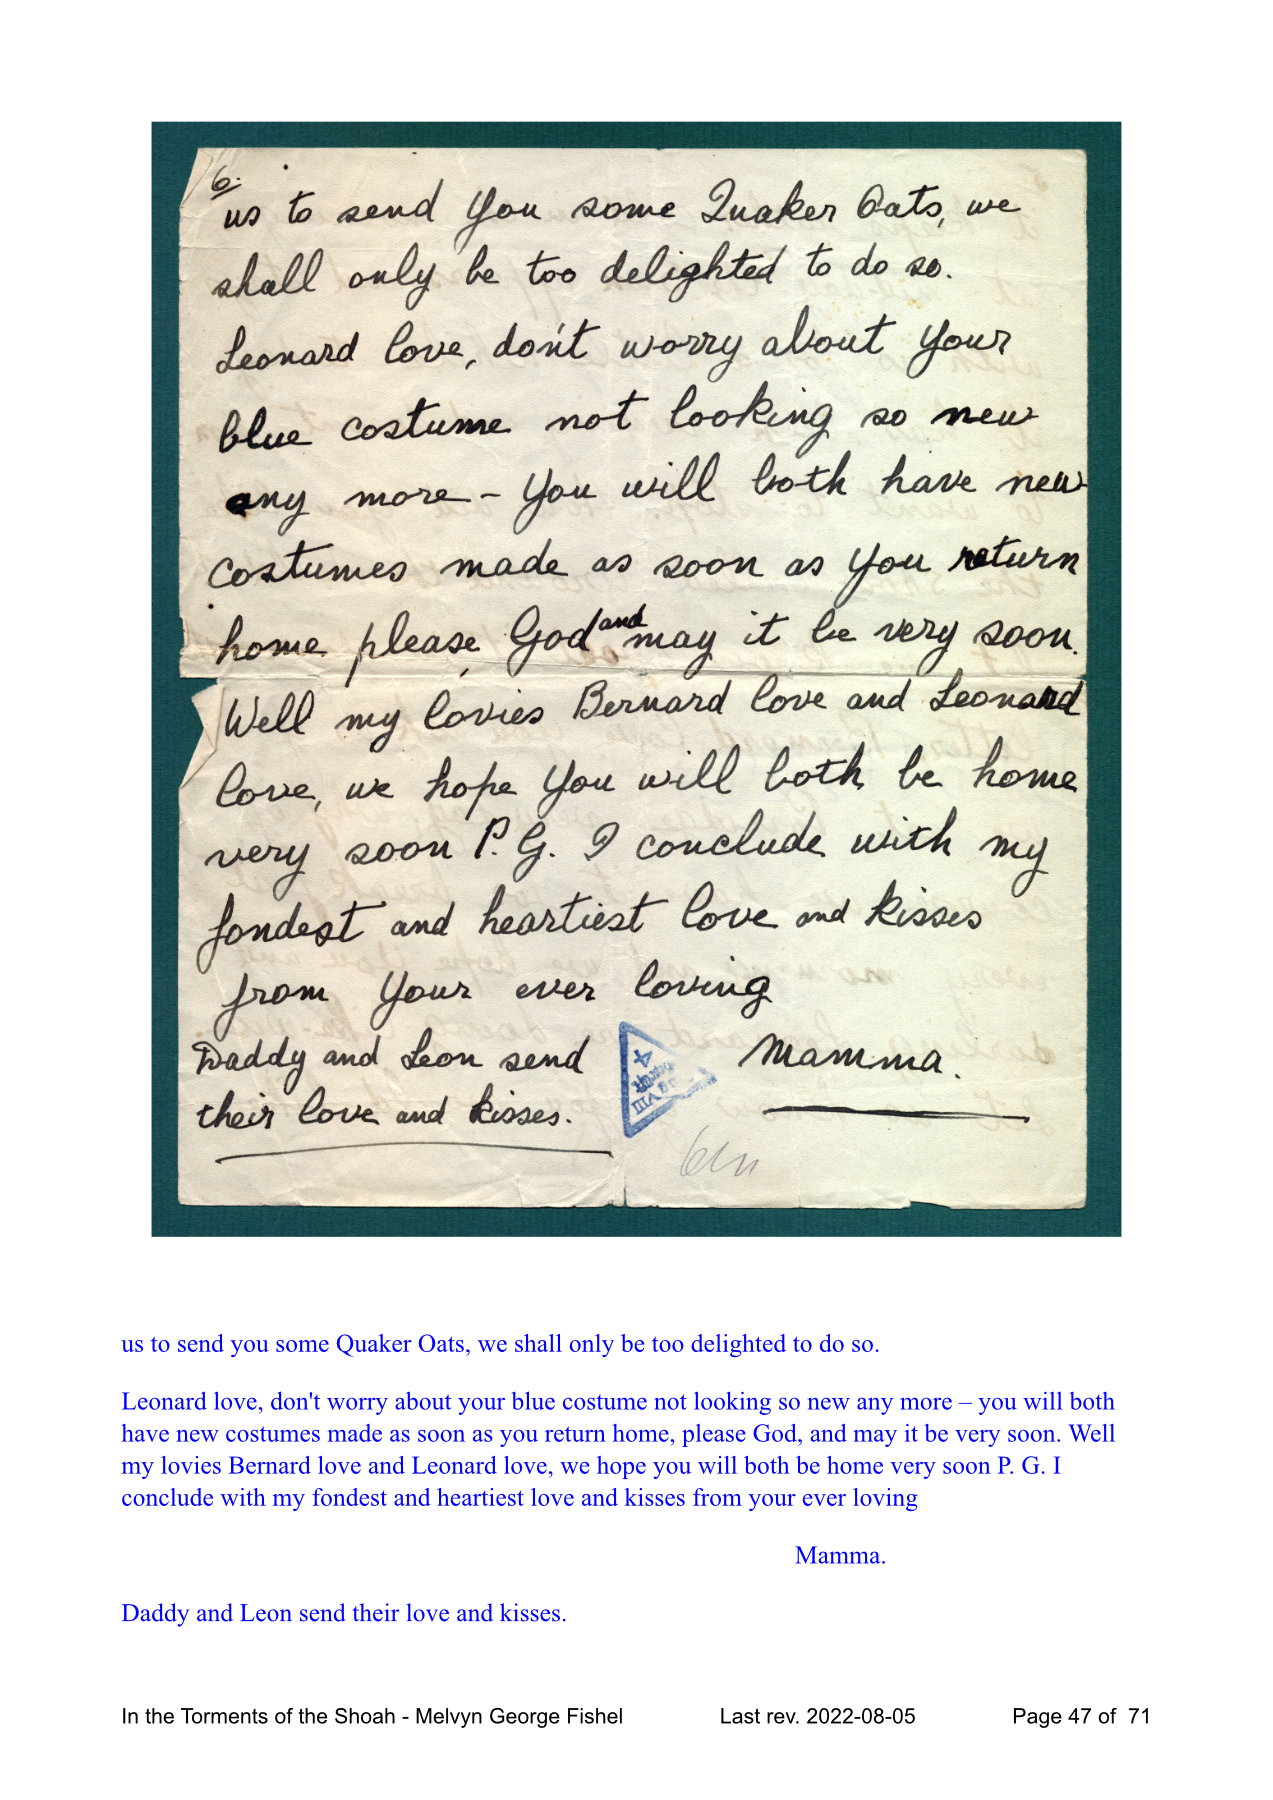 6.
us to send You some Quaker Oats, we
shall only be too delighted to do so.
Leonard love, don't worry about Your
blue costume not looking so new
any more - You will both have new
costumes made as soon as You return
home please God and may it be very soon.
Well my lovies Bernard love and Leonard
love, we hope You will both be home
very soon P. G. I conclude with my
fondest and heartiest love and kisses
from Your ever loving
Daddy and Leon send
their love and kisses.
Mamma.
VIII
4
us to send you some Quaker Oats, we shall only be too delighted to do so.
Leonard love, don't worry about your blue costume not looking so new any more – you will both
have new costumes made as soon as you return home, please God, and may it be very soon. Well
my lovies Bernard love and Leonard love, we hope you will both be home very soon P. G. I
conclude with my fondest and heartiest love and kisses from your ever loving
Mamma.
Daddy and Leon send their love and kisses.
In the Torments of the Shoah - Melvyn George Fishel Last rev. 2022-08-05 Page 47 of 71